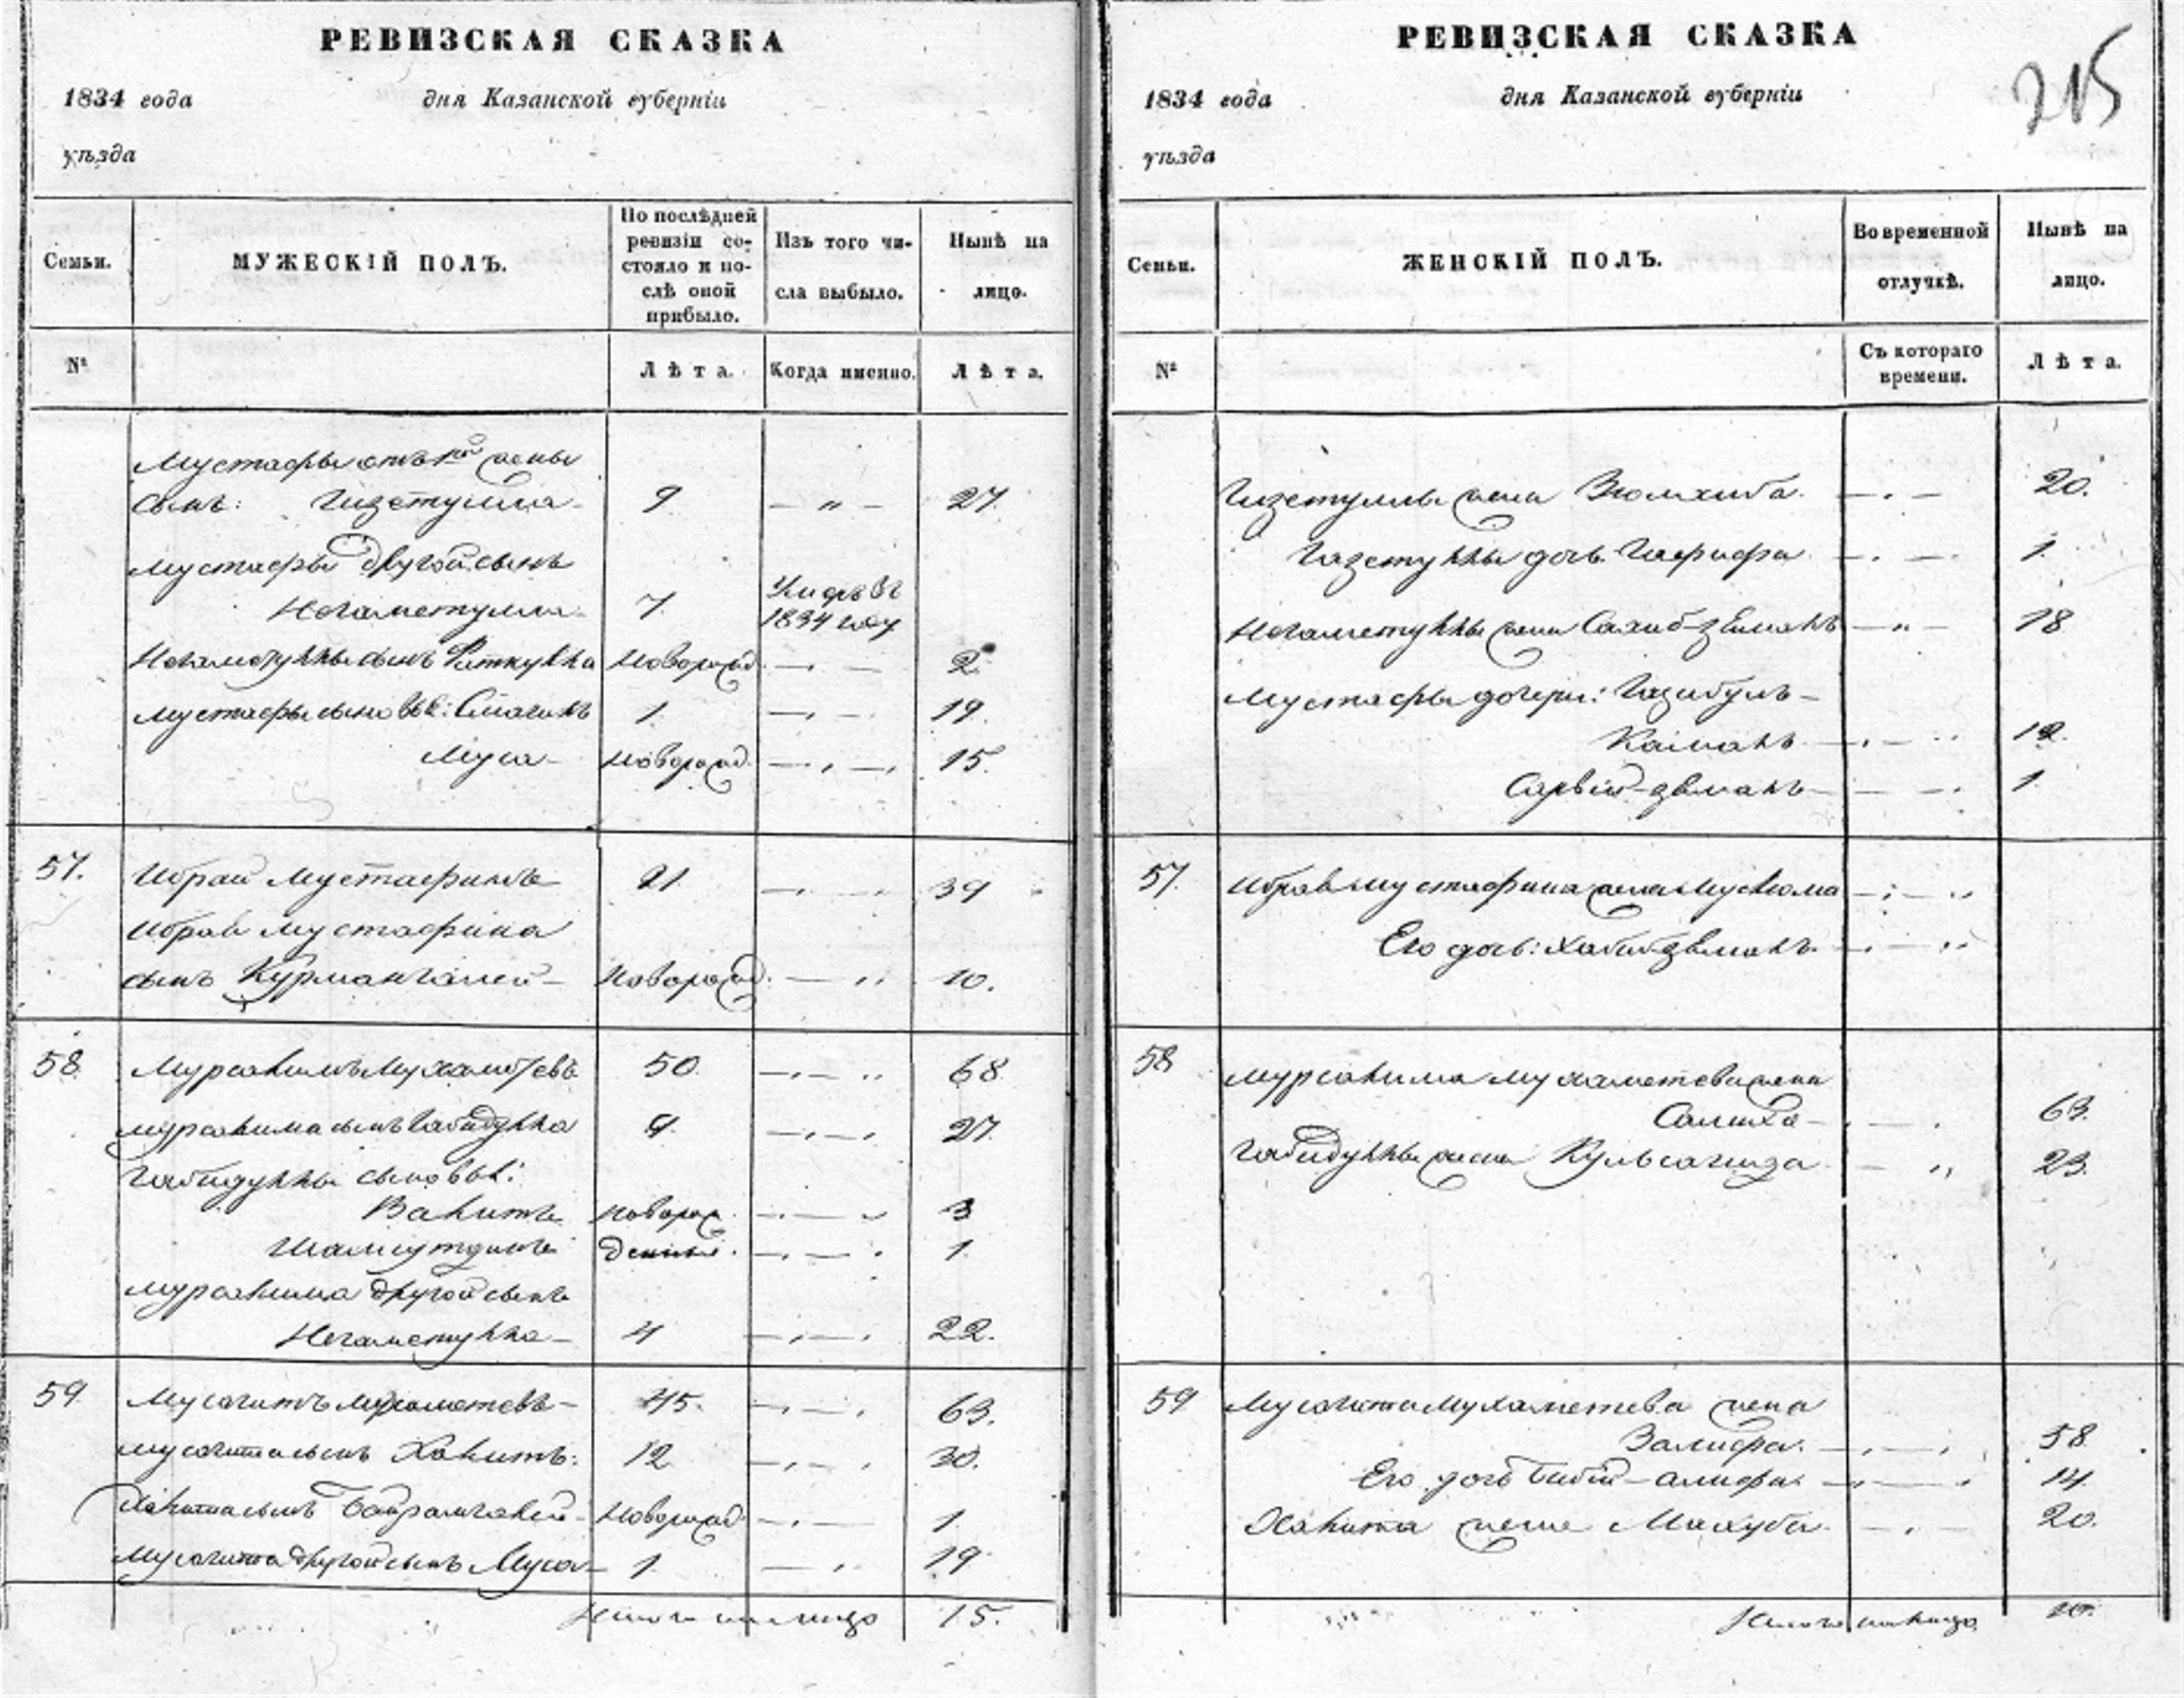 РЕВИЗСКАЯ СКАЗКА
1834 года дня Казанской губерніи
уѣзда
Семьи.
МУЖЕСКІЙ ПОЛЪ.
По послѣдней ревизіи со-
стояло и по-
слѣ оной
прибыло.
Изъ того чи-
сла выбыло.
Нынѣ на
лицо.
№
Лѣта.
Когда именно.
Лѣта.
Мустафы отъ жены
сынъ: Гизетулла 9 — „ — 27
Мустафы другой сынъ
Негаметулла 7 1834 году
Негаметуллы сынъ Фаткулла новорожд. 2
Мустафы сыновья: Смагилъ 1 19
Муса новорожд. 15.
57. Ибрай Мустафинъ 21 39
Ибрая Мустафина
сынъ Курмангалей новорожд. 10.
58 Мурсалимъ Мухаметевъ 50 68
Мурсалима сынъ Габидулла 9 27
Габидуллы сыновья:
Валитъ новорож 3
Шамсутдинъ денныя. 1
Мурсалима другой сынъ
Негаметулла 4 22.
59 Мусагитъ Мухаметевъ 45. 63.
Мусагита сынъ Халитъ: 12 30.
Халита сынъ Байрамгалей новорожд. 1
Мусагита другой сынъ Муса 1 19
Итого на лицо 15.
РЕВИЗСКАЯ СКАЗКА
215
1834 года дня Казанской губерніи
уѣзда
Семьи.
ЖЕНСКІЙ ПОЛЪ.
Во временной
отлучкѣ.
Нынѣ на
лицо.
№
Съ котораго
времени.
Лѣта.
Гизетуллы жена Зюлхиба 20.
Гизетуллы дочь Гафифа 1
Негаметуллы жена Сахиб-земалъ — „ — 18
Мустафы дочери: Газибуль-
Камалъ 12
Сарвій-земалъ 1
57. Ибрая Мустафина жена
Его дочь: Хабибземалъ
58 Мурсалима Мухаметева жена
Салиха 63.
Габидуллы жена Кульсагида 23.
59 Мусагита Мухаметева жена
Залифа. 58
Его дочь Бибій-алифа 14.
Халита жена Махуба 20.
Итого на лицо